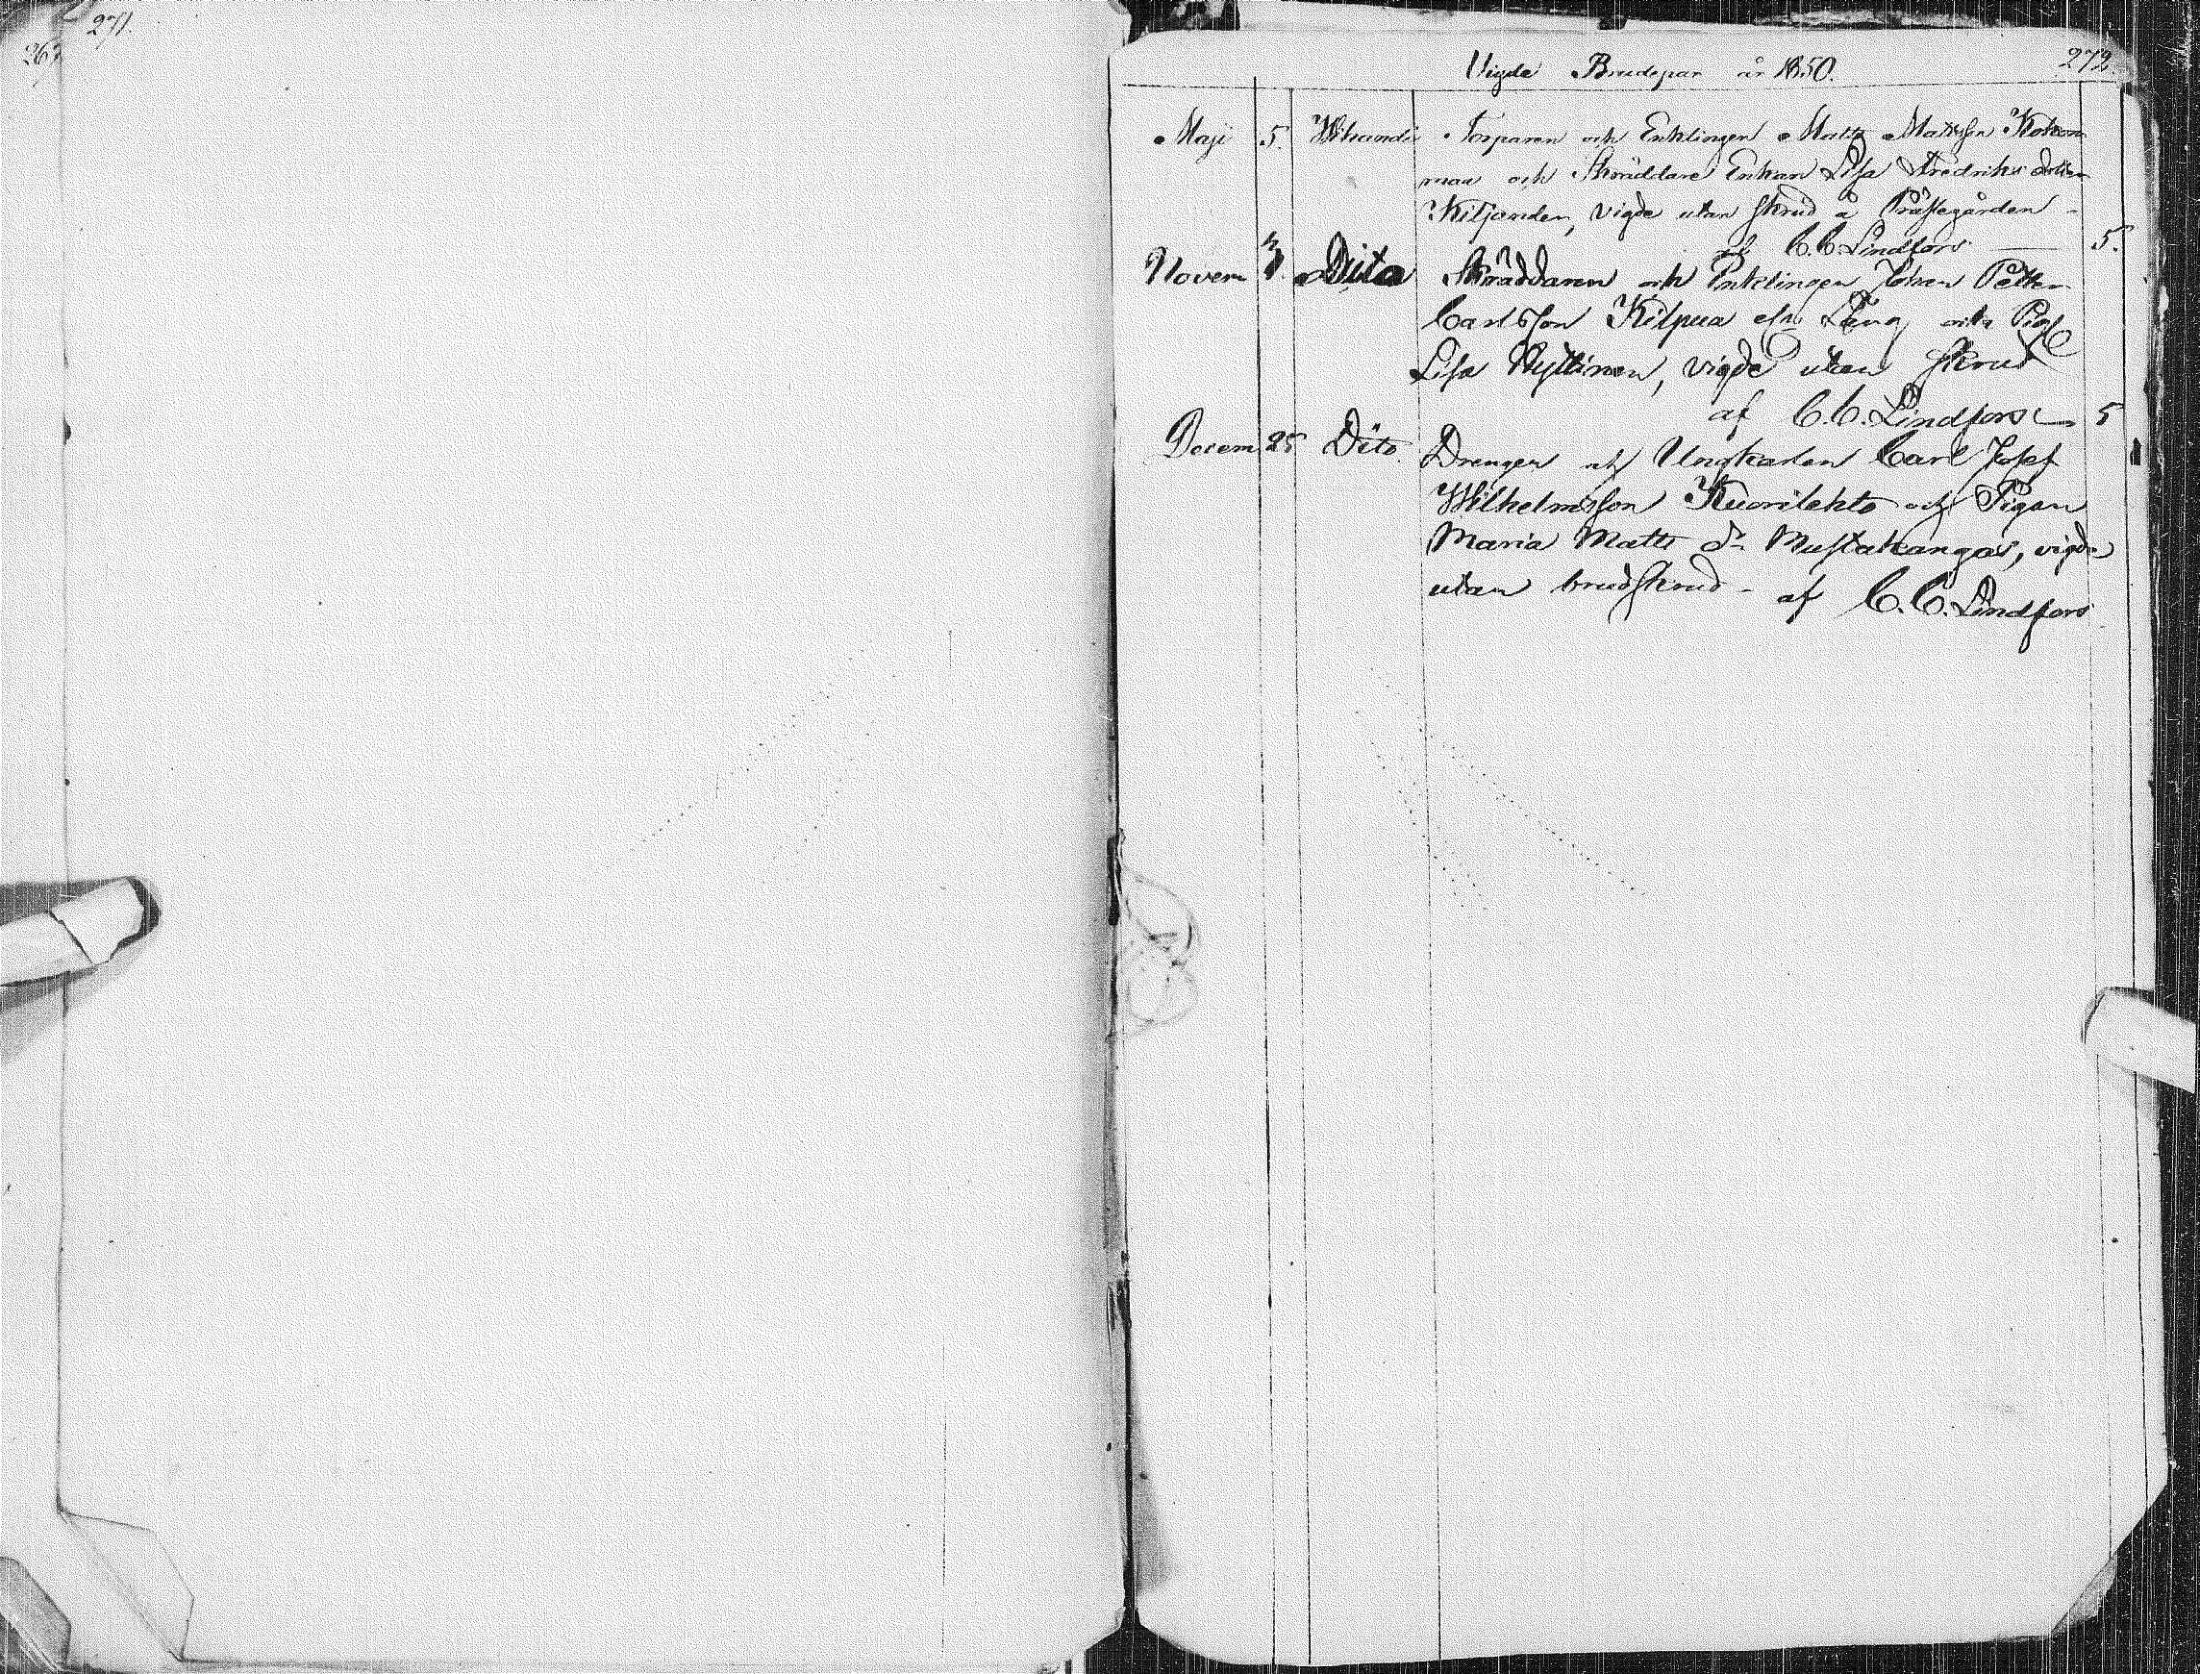 271.
267
Vigde Brudepar år 1850.
272.
Maji 5. Wihandi Torparen och Enklingen Matts Mattsson Kokon
man och Skräddare Enkan Lisa Fredriks dotter
Kiljander, vigde utan skrud å Prästegården -
af C. C. Lindfors — 5.
Novem 3. Dito Skräddaren och Enklingen Johan Petter
Carlsson Kilpua och Pig
Lisa Hyttinen, vigde utan skrud
af C. C. Lindfors — 5
Decem 25 Dito Drengen och Ungkarlen Carl Josef
Wilhelmsson Kuorilehto och Pigan
Maria Matts dr Mustakangas, vigde
utan brudskrud - af C. C. Lindfors